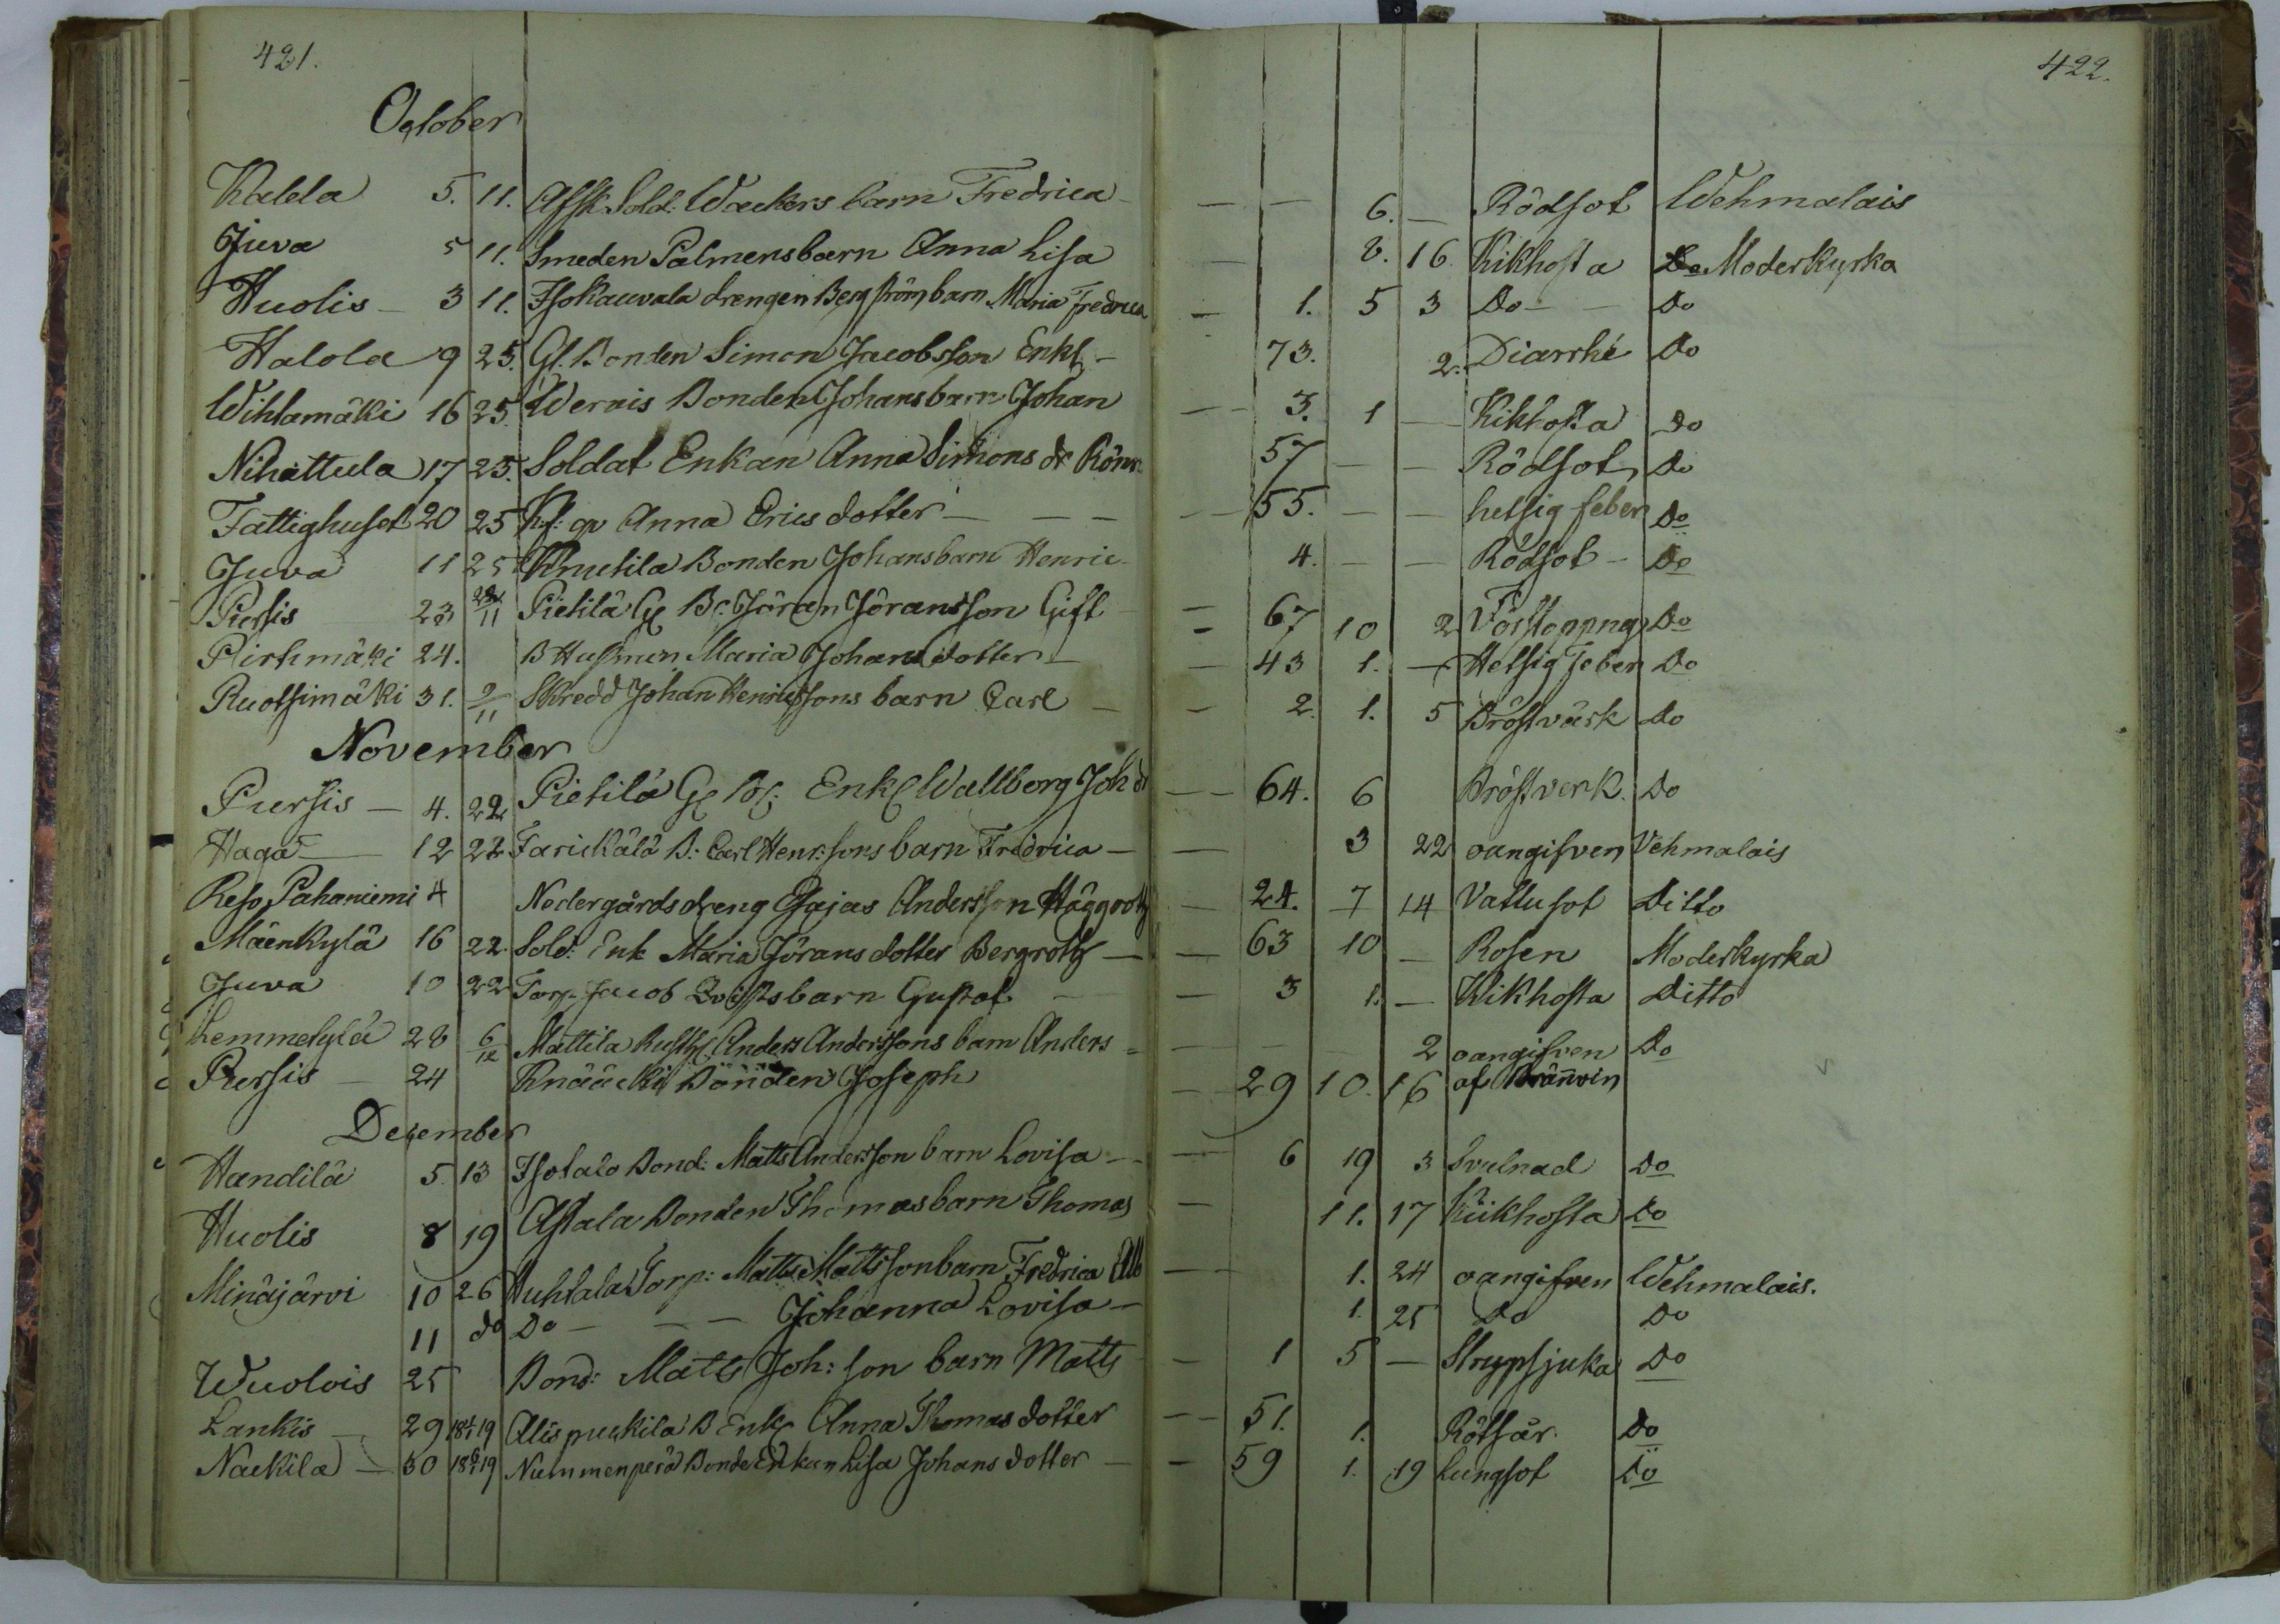 421.
422.
October
Kalela 5. 11. Afsk. Sold. Wackers barn Fredrica - - - 6. - Rödsot Wehmalais
Juva 5 11. Smeden Palmens barn Anna Lisa - 8. 16 Kikhosta Moderkyrka
Huolis - 3 11. Isokauvala drengen Bergström barn Maria Fredrica - 1. 5 3 Do - - Do
Halola 9 25. Gl. Bonden Simon Jacobsson Enkl - 73. 2. Diarrhé Do
Wihlamäki 16 25. Werais Bonden Johans barn Johan - 3. 1 - Kikhosta Do
Nihattula 17 25. Soldat Enkan Anna Simons dr Rönn 57 - - Rödsot Do
Fattighuset 20 25 Anna Erics dotter - - - 55. - - hetsig feber Do
Juva 11 25 Knutila Bonden Johans barn Henric 4. - - Rödsot - Do
Piersis 23 Pietilä Gl Bo. Jöran Jöransson Gift - 67 10 2 Förstoppng Do
Pirhmäki 24. B Husmen Maria Johansdotter - 43 1. - Hetsig Feber Do
Ruotsimäki 31. 9/11 Skredd Johan Henricssons barn Carl - - 2. 1. 5 Bröstvärk Do
November
Piersis - 4. 22 Pietilä Gl Enkl Wallborg Joh dr - 64. 6 Bröstverk. Do
Haga - 12 22 Tarickälä B: Carl Henr:sons barn Fredrica - - 3 22 oangifven Vehmalais
Reso Pahaniemi 4 Nedergårds dreng Esajas Andersson Häggroth - 24. 7 14 Vattusot Ditto
Mäenkylä 16 22. Sold: Enk Maria Jörans dotter Bergroth - 63 10 - Rosen Moderkyrka
Juva 10 22 Torp. Jacob Qvists barn Gustaf - 3 1. - Kikhosta Ditto
Lemmekylä 28 6/12 Mattila Rusth. Anders Anderssons barn Anders - 2 oangifven Do
Piersis - 24 Knääcki Bonden Joseph - 29 10. 16 af Bränvin
December
Handilä 5. 13 Isotalo Bond: Matts Andersson barn Lovisa - - 6 19 3 Svulnad Do
Huolis 8 19 Astala Bonden Thomas barn Thomas - 11. 17 Kikhosta Do
Minäjärvi 10 26 Huhtala Torp: Matts Mattsson barn Fredrica Alb - 1. 24 oangifven Wehmalais.
11 do Do - - - Johanna Lovisa - 1. 25 Do Do
Wuolois 25 Bond: Matts Joh:son barn Matts - 1 5 - Strypsjuka Do
Lankis - 29 Alispuckila B Enk Anna Thomas dotter - 51. 1. Rötsår. Do
Nackila - 30 Nummenperä Bonde Enkan Lisa Johans dotter - - 59 1. 19 Lungsot Do